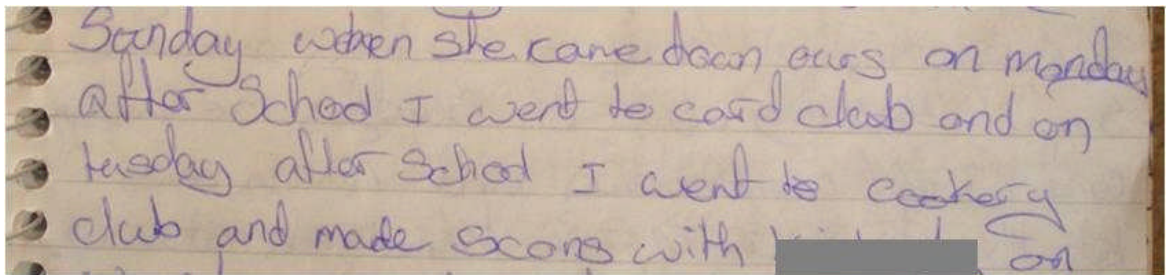 Sunday when she came doan ours on monday
after School I went to card club and on
tusday after School I went to cookery
club and made scons with on